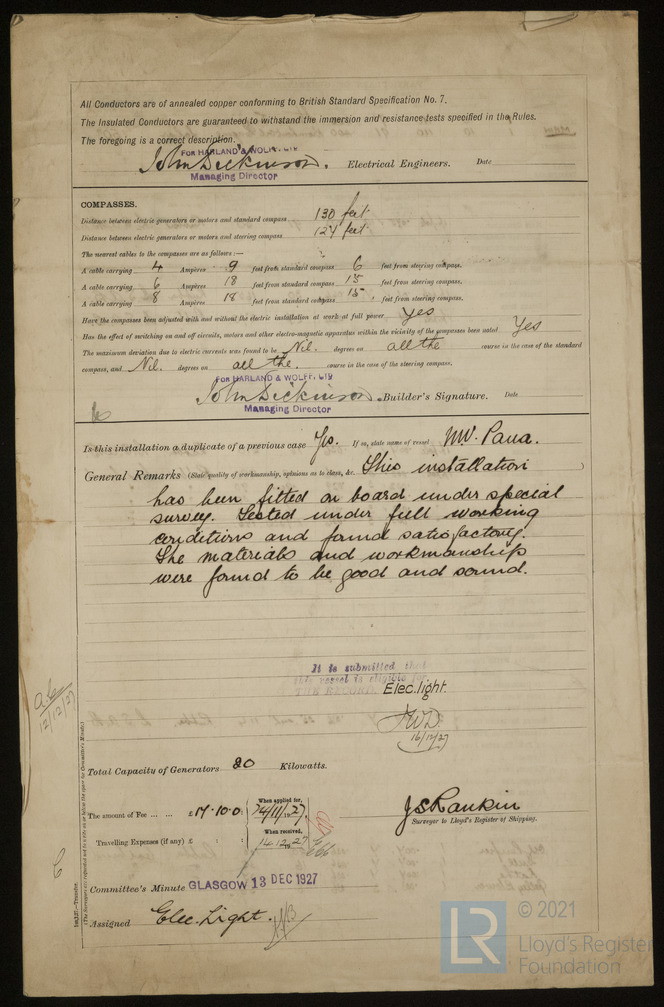 All Conductors are of annealed copper conforming to British Standard Specification No. 7.
The Insulated Conductors are guaranteed to withstand the immersion and resistance tests specified in the Rules.
The foregoing is a correct description.
FOR HARLAND & WOLFF, LTD
John Dickinson. Electrical Engineers. Date
Managing Director
COMPASSES.
Distance between electric generators or motors and standard compass 130 feet
Distance between electric generators or motors and steering compass 127 feet
The nearest cables to the compasses are as follows:—
A cable carrying 4 Ampères 9 feet from standard compass 6 feet from steering compass.
A cable carrying 6 Ampères 18 feet from standard compass 15 feet from steering compass.
A cable carrying 8 Ampères 18 feet from standard compass 15 feet from steering compass.
Have the compasses been adjusted with and without the electric installation at work at full power Yes
Has the effect of switching on and off circuits, motors and other electro-magnetic apparatus within the vicinity of the compasses been noted Yes
The maximum deviation due to electric currents was found to be Nil. degrees on all the course in the case of the standard
compass, and Nil. degrees on all the. course in the case of the steering compass.
FOR HARLAND & WOLFF, LTD
John Dickinson. Builder's Signature. Date
Managing Director
Is this installation a duplicate of a previous case Yes. If so, state name of vessel
General Remarks (State quality of workmanship, opinions as to class, &c. This installation
has been fitted on board under special
survey. Tested under full working
conditions and found satisfactory.
The materials and workmanship
were found to be good and sound.
It is submitted that
this vessel is eligible for
THE RECORD. Elec. light.
16/12/27
12/12/27
Total Capacity of Generators 80 Kilowatts.
The amount of Fee ... ... £17.10.0 When applied for, 24/11/1927.
J S Rankin
Surveyor to Lloyd's Register of Shipping.
Travelling Expenses (if any) £ When received, 14.12.1927
Committee's Minute GLASGOW 13 DEC 1927
Assigned Elec. Light.
© 2021
LR Lloyd's Register
Foundation